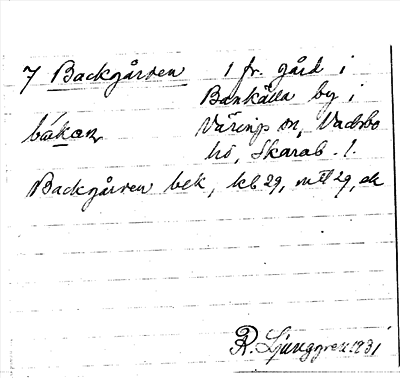 7 Backgården 1 fr. gård i
Bankälla by i
bákan Värings sn, Vadsbo
hd, Skarab. l.
Backgården bek, kb 29, mtl 29, ek
R. Ljunggren 1931